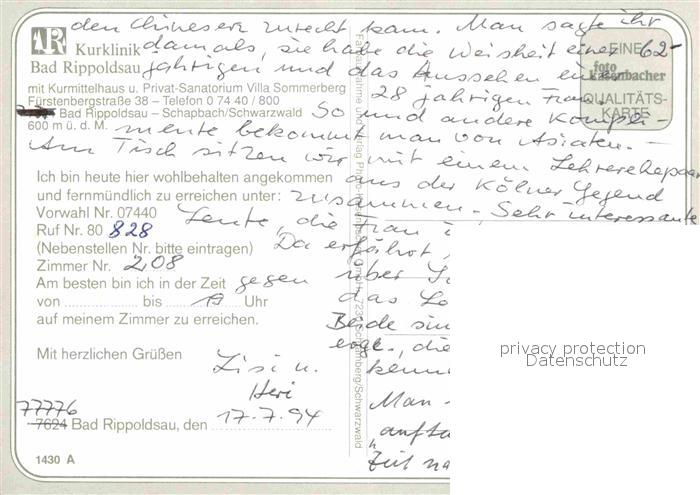 den Chinesen zurecht kam. Man sagte ihr
damals, sie habe die Weisheit einer 62-
jährigen und das Aussehen einer
28 jährigen Frau.
So und andere Kompli-
mente bekommt man von Asiaten. -
Am Tisch sitzen wir mit einem Lehrerehepaar
aus der Kölner Gegend
zusammen - Sehr interessante
Leute, die Frau
Da erfährt
über
das
Beide sin
ergb., die
kenn
Man
"aufta
Zeit na
AR Kurklinik
Bad Rippoldsau
mit Kurmittelhaus u. Privat-Sanatorium Villa Sommerberg
Fürstenbergstraße 38 – Telefon 0 74 40 / 800
Bad Rippoldsau – Schapbach/Schwarzwald
600 m ü. d. M.
EINE
foto
QUALITÄTS-
KARTE
Ich bin heute hier wohlbehalten angekommen
und fernmündlich zu erreichen unter:
Vorwahl Nr. 07440
Ruf Nr. 80 828
(Nebenstellen Nr. bitte eintragen)
Zimmer Nr. 208
Am besten bin ich in der Zeit gegen
von bis 19 Uhr
auf meinem Zimmer zu erreichen.
Mit herzlichen Grüßen
Lisi u.
Heri
77776
7624 Bad Rippoldsau, den 17.7.94
1430 A
privacy protection
Datenschutz